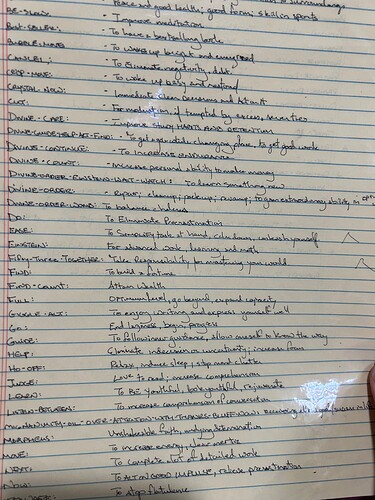 - Peace and good health; good form; skill in sports
BE-SLOW: - Improve meditation
BEST-SELLER: - To have a bestselling book
BUBBLE-MOVE - To wake up bright and energized
CANCEL: - To Eliminate negativity, debt,
CROP-MOVE: - To wake up easy and
CRYSTAL NOW: - Immediate clean
CUT: - For moderation if tempted by excess,
DIVINE-CARE: - Improve study HABITS AND RETENTION
DIVINE-GUIDE-HELP-ACT-FIND: - To get a job while changing place, to get good work
DIVINE-CONTINUE: - To INCREASE ENDURANCE
DIVINE-COUNT: - Increase personal ability to make money
DIVINE-ORDER-EINSTEIN-WAIT-WATCH: To learn something new
DIVINE-ORDER: - Repair, cleanup, packup, runup, to gain extraordinary ability, in
DIVINE-ORDER-WOOD: To balance chakras
DO: To Eliminate Procrastination
EASE: To Simplify task at hand, calm down, unleash yourself
EINSTEIN: For advanced work, learning and math
FIFTY-THREE TOGETHER: Take Responsibility, for mastering your world
FIND: To build a fortune
FIND-COUNT: Attain Wealth
FULL: Optimum level, go beyond, expand capacity
GIGGLE-ACT: To enjoy writing and express yourself well
GO: End laziness, begin progress
GUIDE: To follow inner guidance, allow myself to know the way
HELP: Eliminate indecision or uncertainty; increase focus
HO-OFF: Relax, induce sleep, stop
JUDGE: Love to read; increase comprehension
LEARN: To BE youthful, look youthful, rejuvenate
LISTEN-BETWEEN: To increase comprehension of conversation
MORPHEUS: Unshakeable faith, undying determination
MOVE: To increase energy, clear inertia
NEXT: To complete alot of detailed work
NOW: To ACT ON GOOD IMPULSE, release procrastination
To stop flatulence